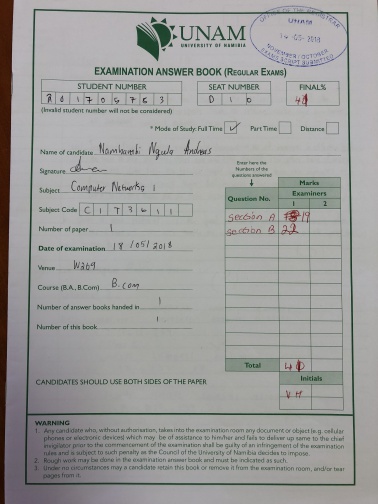 UNAM
UNIVERSITY OF NAMIBIA
OFFICE OF THE REGISTRAR
UNAM
2018
NOVEMBER / OCTOBER
EXAMS SCRIPT SUBMITTED
EXAMINATION ANSWER BOOK (REGULAR EXAMS)
STUDENT NUMBER SEAT NUMBER FINAL%
2 0 1 7 0 6 7 6 3 D 1 0
(Invalid student number will not be considered)
* Mode of Study: Full Time ✓ Part Time Distance
Name of candidate Andreas
Signature
Subject Computer Networks 1
Subject Code C I T 3 6 1 1
Number of paper 1
Date of examination 18/05/2018
Venue W269
Course (B.A., B.Com) B.com
Number of answer books handed in 1
Number of this book 1
Enter here the
Numbers of the
questions answered
Marks
Question No. Examiners
1 2
Section A 19
Section B 22
Total
Initials
VH
CANDIDATES SHOULD USE BOTH SIDES OF THE PAPER
WARNING
1. Any candidate who, without authorisation, takes into the examination room any document or object (e.g. cellular
phones or electronic devices) which may be of assistance to him/her and fails to deliver up same to the chief
invigilator prior to the commencement of the examination shall be guilty of an infringement of the examination
rules and is subject to such penalty as the Council of the University of Namibia decides to impose.
2. Rough work may be done in the examination answer book and must be indicated as such.
3. Under no circumstances may a candidate retain this book or remove it from the examination room, and/or tear
pages from it.